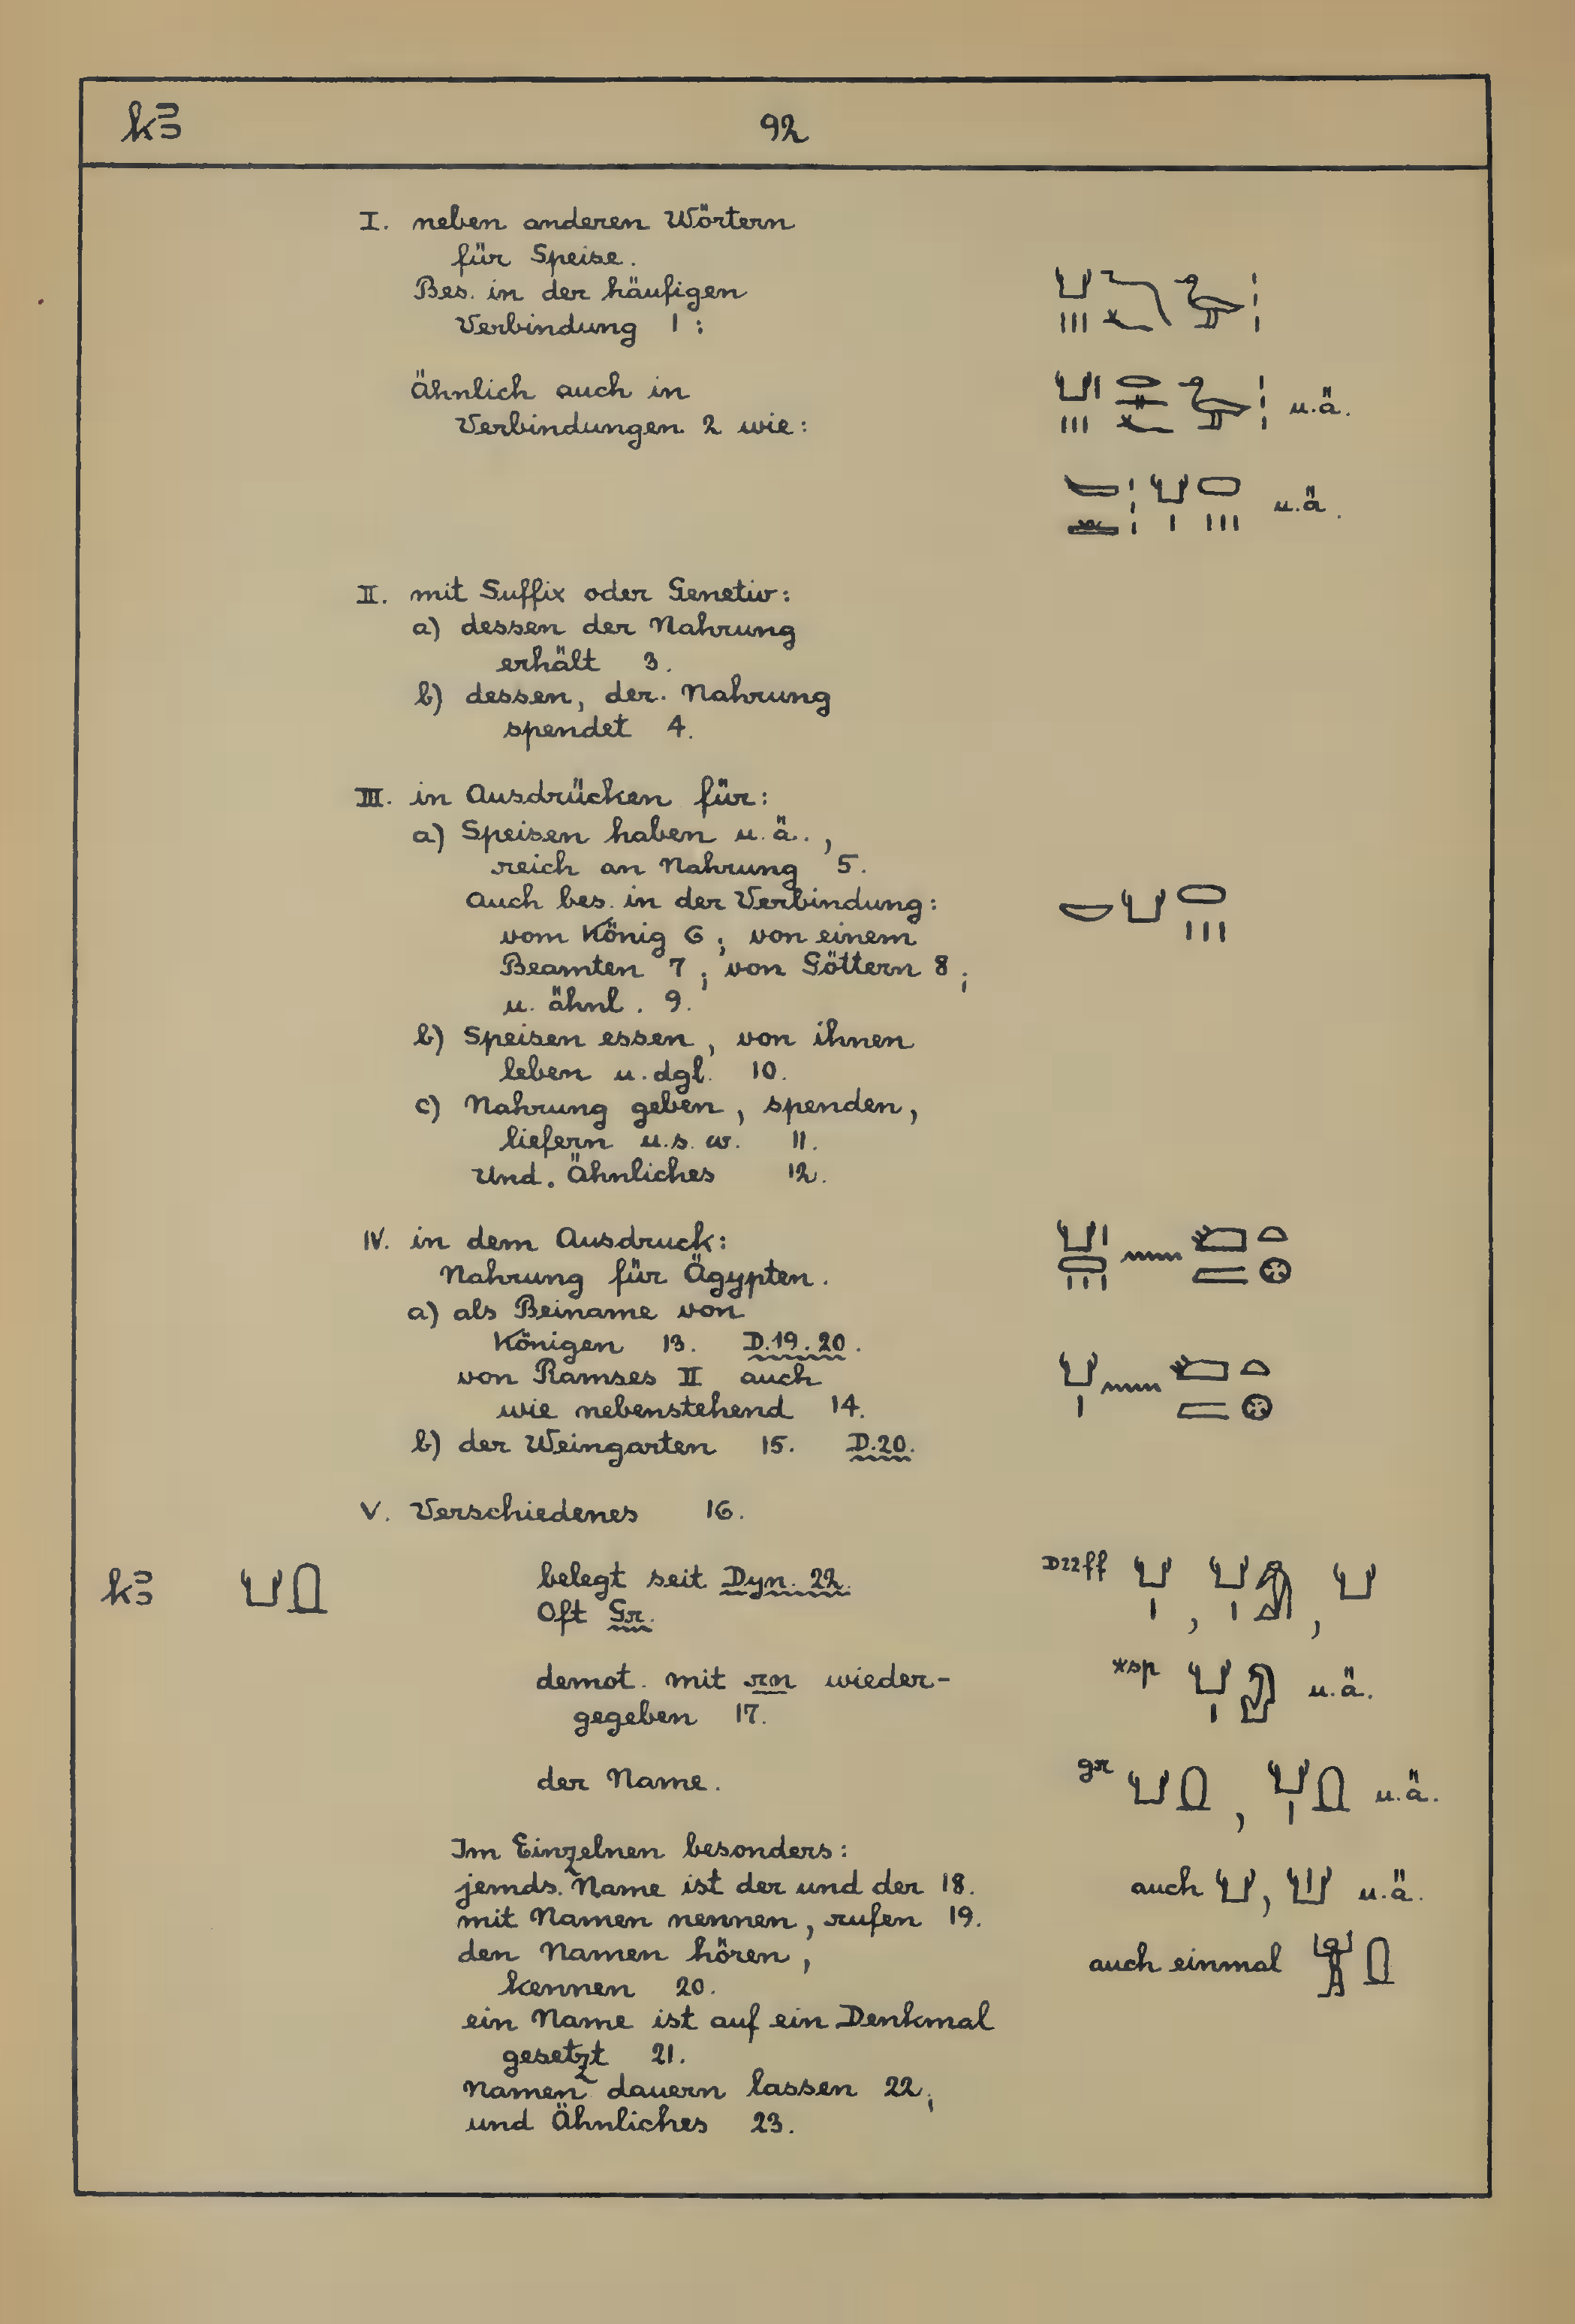 kꜣ 92
I. neben anderen Wörtern
für Speise.
Bes. in der häufigen
Verbindung 1 :
Ähnlich auch in
Verbindungen 2 wie: u.ä.
u.ä.
II. mit Suffix oder Genetiv:
a) dessen der Nahrung
erhält 3.
b) dessen, der. Nahrung
spendet 4.
III. in Ausdrücken für:
a) Speisen haben u.ä.,
reich an Nahrung 5.
Auch bes. in der Verbindung:
vom König 6; von einem
Beamten 7; von Göttern 8;
u. ähnl. 9.
b) Speisen essen, von ihnen
leben u. dgl. 10.
c) Nahrung geben, spenden,
liefern u.s.w. 11.
Und. Ähnliches 12.
IV. in dem Ausdruck:
Nahrung für Ägypten.
a) als Beiname von
Königen 13. D.19.20.
von Ramses II auch
wie nebenstehend 14.
b) der Weingarten 15. D.20.
V. Verschiedenes 16.
kꜣ belegt seit Dyn. 22. D22ff , ,
Oft Gr.
demot. mit rn wieder- *sp u.ä.
gegeben 17.
der Name. gr , u.ä.
Im Einzelnen besonders:
jemds. Name ist der und der 18. auch , u.ä.
mit Namen nennen, rufen 19.
den Namen hören, auch einmal
kennen 20.
ein Name ist auf ein Denkmal
gesetzt 21.
Namen dauern lassen 22;
und Ähnliches 23.